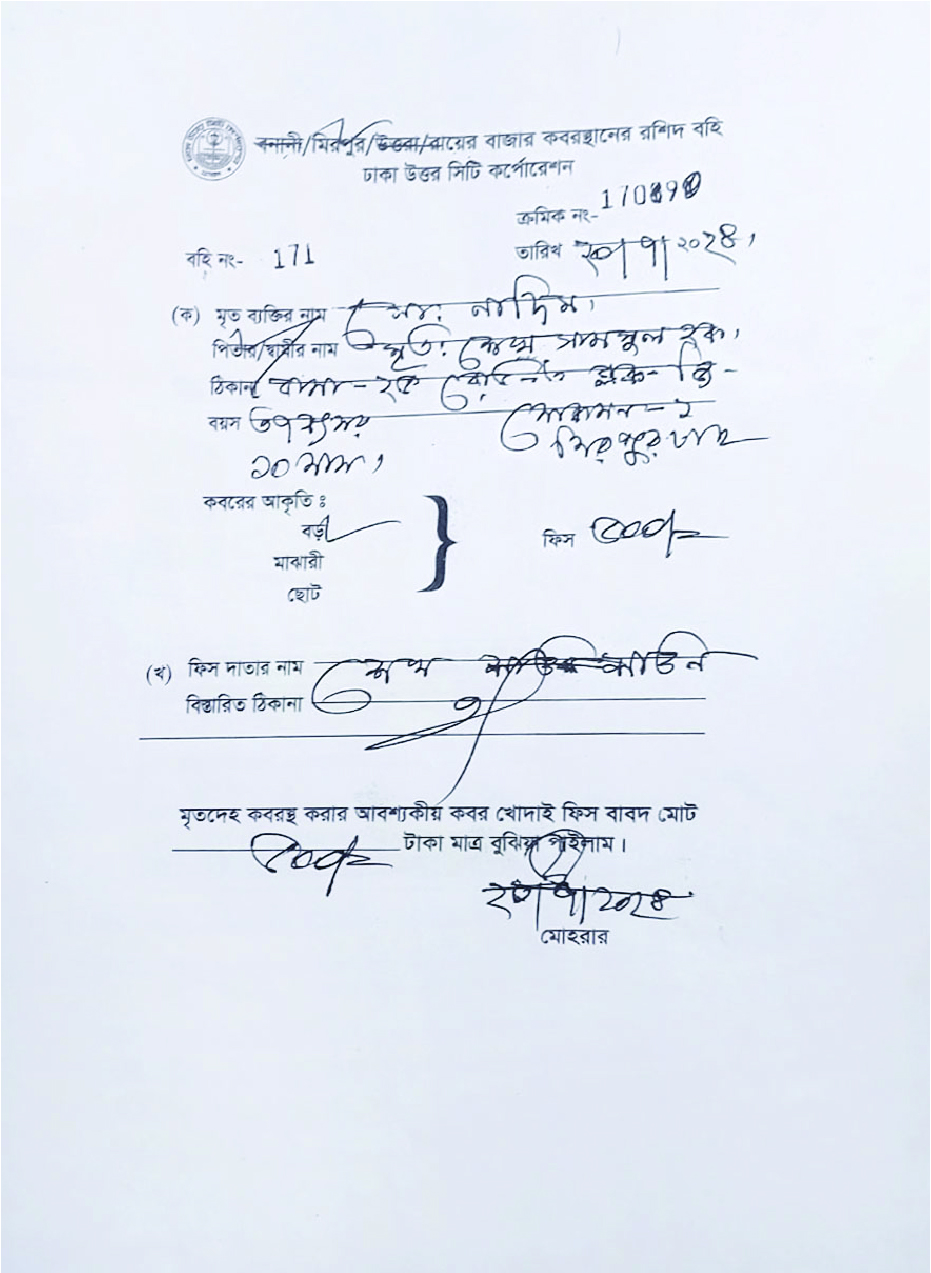 বনানী/মিরপুর/উত্তরা/রায়ের বাজার কবরস্থানের রশিদ বহি
ঢাকা উত্তর সিটি কর্পোরেশন
ক্রমিক নং-
বহি নং- 171
তারিখ ২০/৭/২০২৪,
(ক) মৃত ব্যক্তির নাম মো: নাদিম,
পিতার/স্বামীর নাম মৃত: শেখ সামসুল হক,
ঠিকানা বাসা - ব্লক- বি -
বয়স ৩৭ বৎসর
সেকশন - ২
১০ মাস,
মিরপুর ঢাকা
কবরের আকৃতি ঃ
বড়
ফিস ৫০০/=
মাঝারী
ছোট
(খ) ফিস দাতার নাম শেখ
বিস্তারিত ঠিকানা
মৃতদেহ কবরস্থ করার আবশ্যকীয় কবর খোদাই ফিস বাবদ মোট
৫০০/= টাকা মাত্র বুঝিয়া পাইলাম।
২০/৭/২০২৪
মোহরার